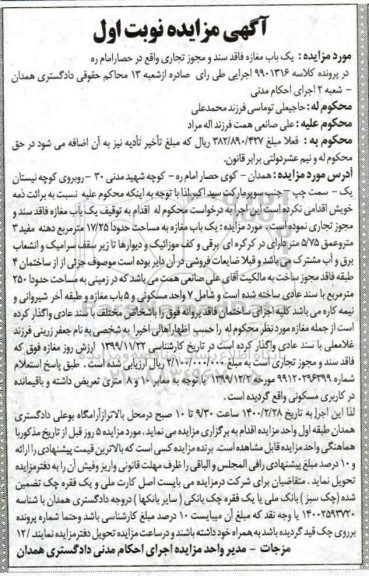 آگهی مزایده نوبت اول
مورد مزایده : یک باب مغازه فاقد سند و مجوز تجاری واقع در حصار امام ره
در پرونده کلاسه ۹۹۰۱۳۱۶ اجرایی طی رای صادره از شعبه ۱۳ محاکم حقوقی دادگستری همدان
– شعبه ۲ اجرای احکام مدنی
محکوم له : حاجیعلی توماسی فرزند محمدعلی
محکوم علیه : علی صانعی همت فرزند اله مراد
محکوم به : فعلا مبلغ ۳۸۲/۸۹۰/۴۲۷ ریال که مبلغ تأخیر تأدیه نیز به آن اضافه می شود در حق
محکوم له و نیم عشر دولتی برابر قانون.
آدرس مورد مزایده : همدان – کوی حصار امام ره – کوچه شهید مدنی ۳۰ – روبروی کوچه نیستان
یک – سمت چپ – جنب سوپرمارکت سید اکبر لذا با توجه به اینکه محکوم علیه نسبت به برائت ذمه
خویش اقدامی نکرده است این اجرا به درخواست محکوم له اقدام به توقیف یک باب مغازه فاقد سند و
مجوز تجاری نموده است . مورد مزایده : یک باب مغازه به مساحت حدودا ۱۷/۲۵ مترمربع دهنه مفید ۳
متر و عمق ۵/۷۵ متر دارای در کرکره ای برقی و کف موزائیک و دیوارها تا زیر سقف سرامیک و انشعاب
برق و آب مشترک می باشد و قبلا ضایعات فروشی در آن دایر بوده است موصوف جزئی از از ساختمان ۴
طبقه فاقد مجوز ساخت به مالکیت آقای علی صانعی همت می باشد که در زمینی به مساحت حدودا ۲۵۰
مترمربع با سند عادی ساخته شده است و شامل ۷ واحد مسکونی و ۵ باب مغازه و طبقه آخر شیروانی و
نیمه کاره می باشد کلیه اجزای ساختمان فاقد پروانه فوق را باشخاص مختلف با سند عادی واگذار کرده
است از جمله مغازه مورد نظر محکوم له را حسب اظهار اهالی اخیرا به شخصی به نام جعفر زرینی فرزند
غلامعلی با سند عادی واگذار کرده است در تاریخ کارشناسی ۱۳۹۹/۱۱/۲۲ ارزش روز مغازه فوق که
فاقد سند و مجوز تجاری است به مبلغ ۲/۱۰۰/۰۰۰/۰۰۰ ریال ارزیابی شده است . طبق پاسخ استعلام
شماره ۹۹۱۲۰۲۹۶۳۹۹ مورخه ۱۳۹۹/۱۲/۲ با توجه به معابر ۱۰ و ۸ متری تعریض داشته و باقیمانده
در کاربری مسکونی واقع گردیده است .
لذا این اجرا به تاریخ ۱۴۰۰/۲/۲۸ ساعت ۹/۳۰ تا ۱۰ صبح در محل بالاتر از آرامگاه بوعلی دادگستری
همدان طبقه اول واحد مزایده اقدام به برگزاری مزایده می نماید . مورد مزایده ۵ روز قبل از تاریخ مذکور با
هماهنگی واحد مزایده قابل مشاهده است. برنده مزایده کسی است که بالاترین قیمت پیشنهادی را ارائه
و ۱۰ درصد مبلغ پیشنهادی را فی المجلس و الباقی را ظرف مهلت قانونی واریز و فیش آن را به دفتر مزایده
تحویل نماید . متقاضیان برای شرکت در مزایده می بایست اصل کارت ملی و یک فقره چک تضمین
شده (چک سبز ) بانک ملی یا یک فقره چک بانکی ( سایر بانکها ) در وجه دادگستری همدان با شناسه
۱۴۰۰۲۵۹۳۷۲۰ یا وجه نقد که مبلغ آن میبایست ۱۰ درصد مبلغ کارشناسی باشد و حتما شماره پرونده
بر روی چک قید گردیده باشد به همراه خود داشته باشند و در ساعت مزایده تحویل دفتر مزایده نمایند / ۱۲
مزجات – مدیر واحد مزایده اجرای احکام مدنی دادگستری همدان